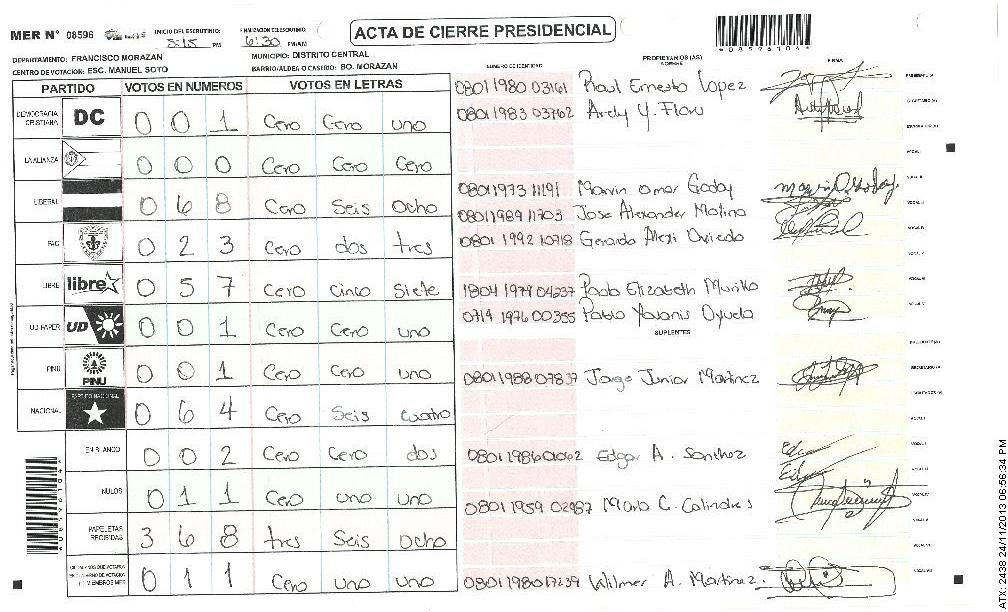 MER N° 08596
INICIO DEL ESCRUTINIO: 5:15 PM
FINALIZACION ESCRUTINIO: 6:30 PM/AM
ACTA DE CIERRE PRESIDENCIAL
*08596104*
DEPARTAMENTO: FRANCISCO MORAZAN
MUNICIPIO: DISTRITO CENTRAL
CENTRO DE VOTACION: ESC. MANUEL SOTO
BARRIO/ALDEA O CASERIO: BO. MORAZAN
PARTIDO VOTOS EN NUMEROS VOTOS EN LETRAS
NUMERO DE IDENTIDAD PROPIETARIOS (AS) NOMBRE FIRMA
DEMOCRACIA CRISTIANA DC 0 0 1 Cero Cero uno
LA ALIANZA 0 0 0 Cero Cero Cero
LIBERAL 0 6 8 Cero Seis Ocho
PAC 0 2 3 Cero dos tres
LIBRE libre 0 5 7 Cero Cinco Siete
UD-FAPER UD 0 0 1 Cero Cero uno
PINU PINU 0 0 1 Cero Cero uno
NACIONAL PARTIDO NACIONAL 0 6 4 Cero Seis cuatro
EN BLANCO 0 0 2 Cero Cero dos
NULOS 0 1 1 Cero uno uno
PAPELETAS RECIBIDAS 3 6 8 tres Seis Ocho
0 1 1 Cero uno uno
0801 1980 03161 Raul Ernesto Lopez
0801 1983 03762
0801 1973 11191 Marvin Omar Godoy
0801 1989 11703 Jose Alexander Molina
0801 1992 10718 Gerardo Alexi Oviedo
1804 1979 04237 Elizabeth Murillo
0719 1976 00355 Pablo Oyuela
SUPLENTES
0801 1988 07837 Jorge Junior Martinez
0801 1986 Edgar A. Sanchez
0801 1959 02987 Mario C. Calindres
0801 1980 Wilmer A. Martinez.
ATX 2438 24/11/2013 06:56:34 PM